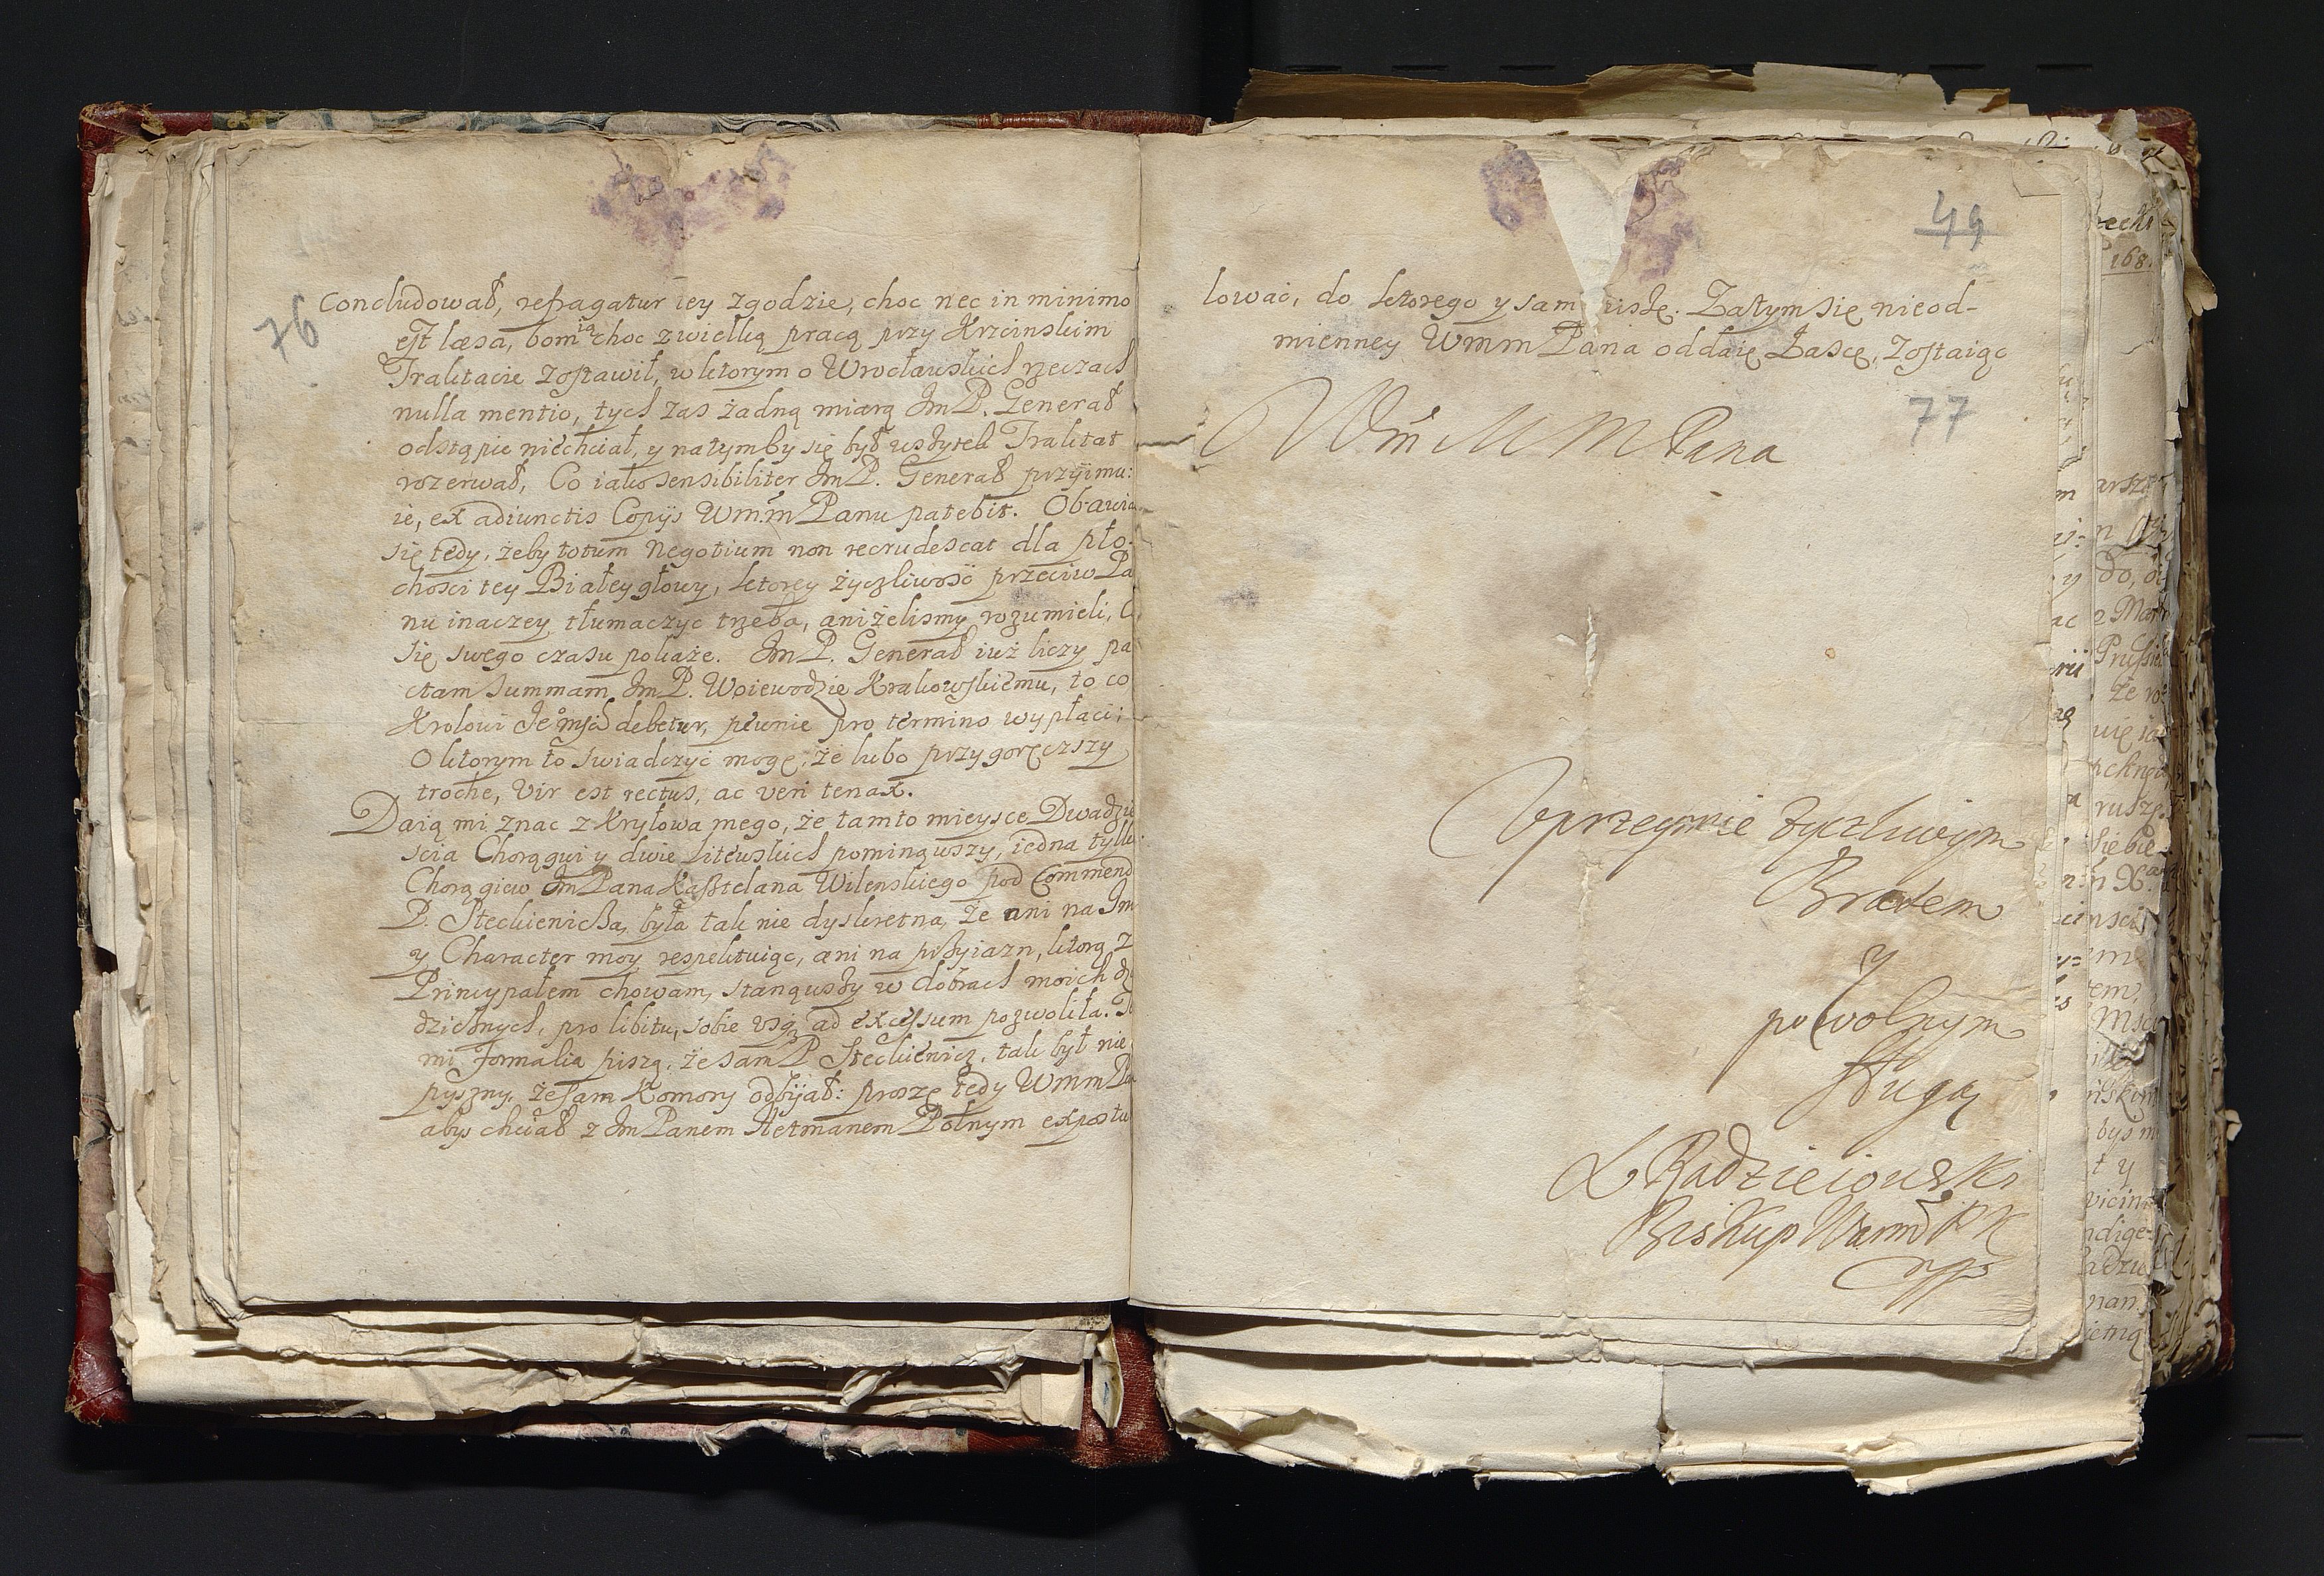 76
Concludował, refragatur tey zgodzie, choc nec in minimo
est læsa, bom ią choc z wielką pracą przy Krzcinskim
Traktacie zostawił, w ktorym o Wrocławskich rzeczach
nulla mentio, tych zas żadną miarą Jm P. Generał
odstąpic niechciał, y na tymby się był wszytek Traktat
rozerwał, Co iako sensibiliter Jm P. Generał przÿimu:
ie, ex adiunctis Copijs Wm:m Panu patebit. Obawia
się tedy, żeby totum Negotium non recrudescat dla pło-
chosci tey Białey głowy, ktorey życzliwość przeciw Pa
nu inaczey tłumaczyc trzeba, aniżelismy rozumieli, C
się swego czasu pokaże. Jm P. Generał iuż liczy pa
ctam Summam Jm P. Woiewodzie Krakowskiemu, to co
Krolowi Jeomsci debetur, pewnie pro termino wypłaci;
O ktorym to swiadczyć mogę, że lubo przygorętszy
troche, Vir est rectus, ac veri tenax.
Daią mi znac z Kryłowa mego, że tamto mieysce Dwadzie
scia Chorągwi y dwie Litewskich pominąwszy, iedna tylko
Chorągiew Jm Pana Kasztelana Wilenskiego pod Commend
P. Steckienicza, była tak nie dyskretna, że ani na Jm
y Character moy respektuiąc, ani na przyiazn, ktorą z
Principałem chowam, stanąwszy w dobrach moich dz
dzicznych, pro libitu, sobie vsq3 ad excessum pozwoliła. To
mi formalia piszą, że sam P. Steckienicz, tak był nie
pyszny, że sam Komory odbijał: proszę tedy Wmm Pan
abys chciał z Jm Panem Hetmanem Polnym expostu
49
lować, do ktorego y sam piszę. Zatym się nieod-
mienney Wmm Pana oddaię Łasce, zostaiąc
77
Wm M M Pana
Vprzeymie życzliwym
Bratem
y
powolnym
sługą
L Radzieiowski
Biskup Warm P K
mp